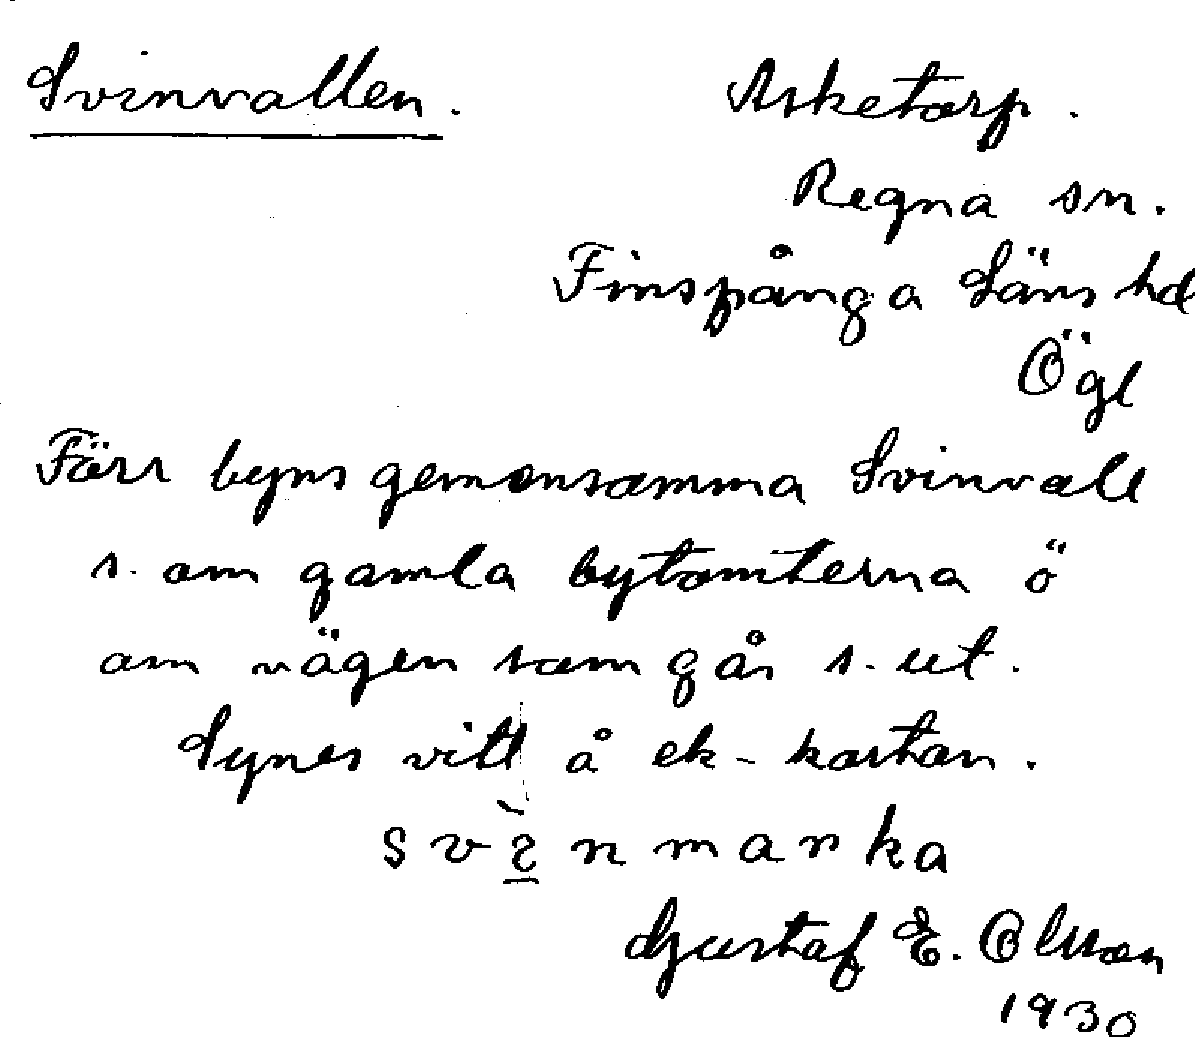 Svinvallen.
Asketorp.
Regna sn.
Finspånga Läns hd
Ögl
Förr byns gemensamma Svinvall
s. om gamla bytomterna ö
om vägen som går s. ut.
Synes vitt å ek-kartan.
Svìnmarka
Gustaf E. Olsson
1930